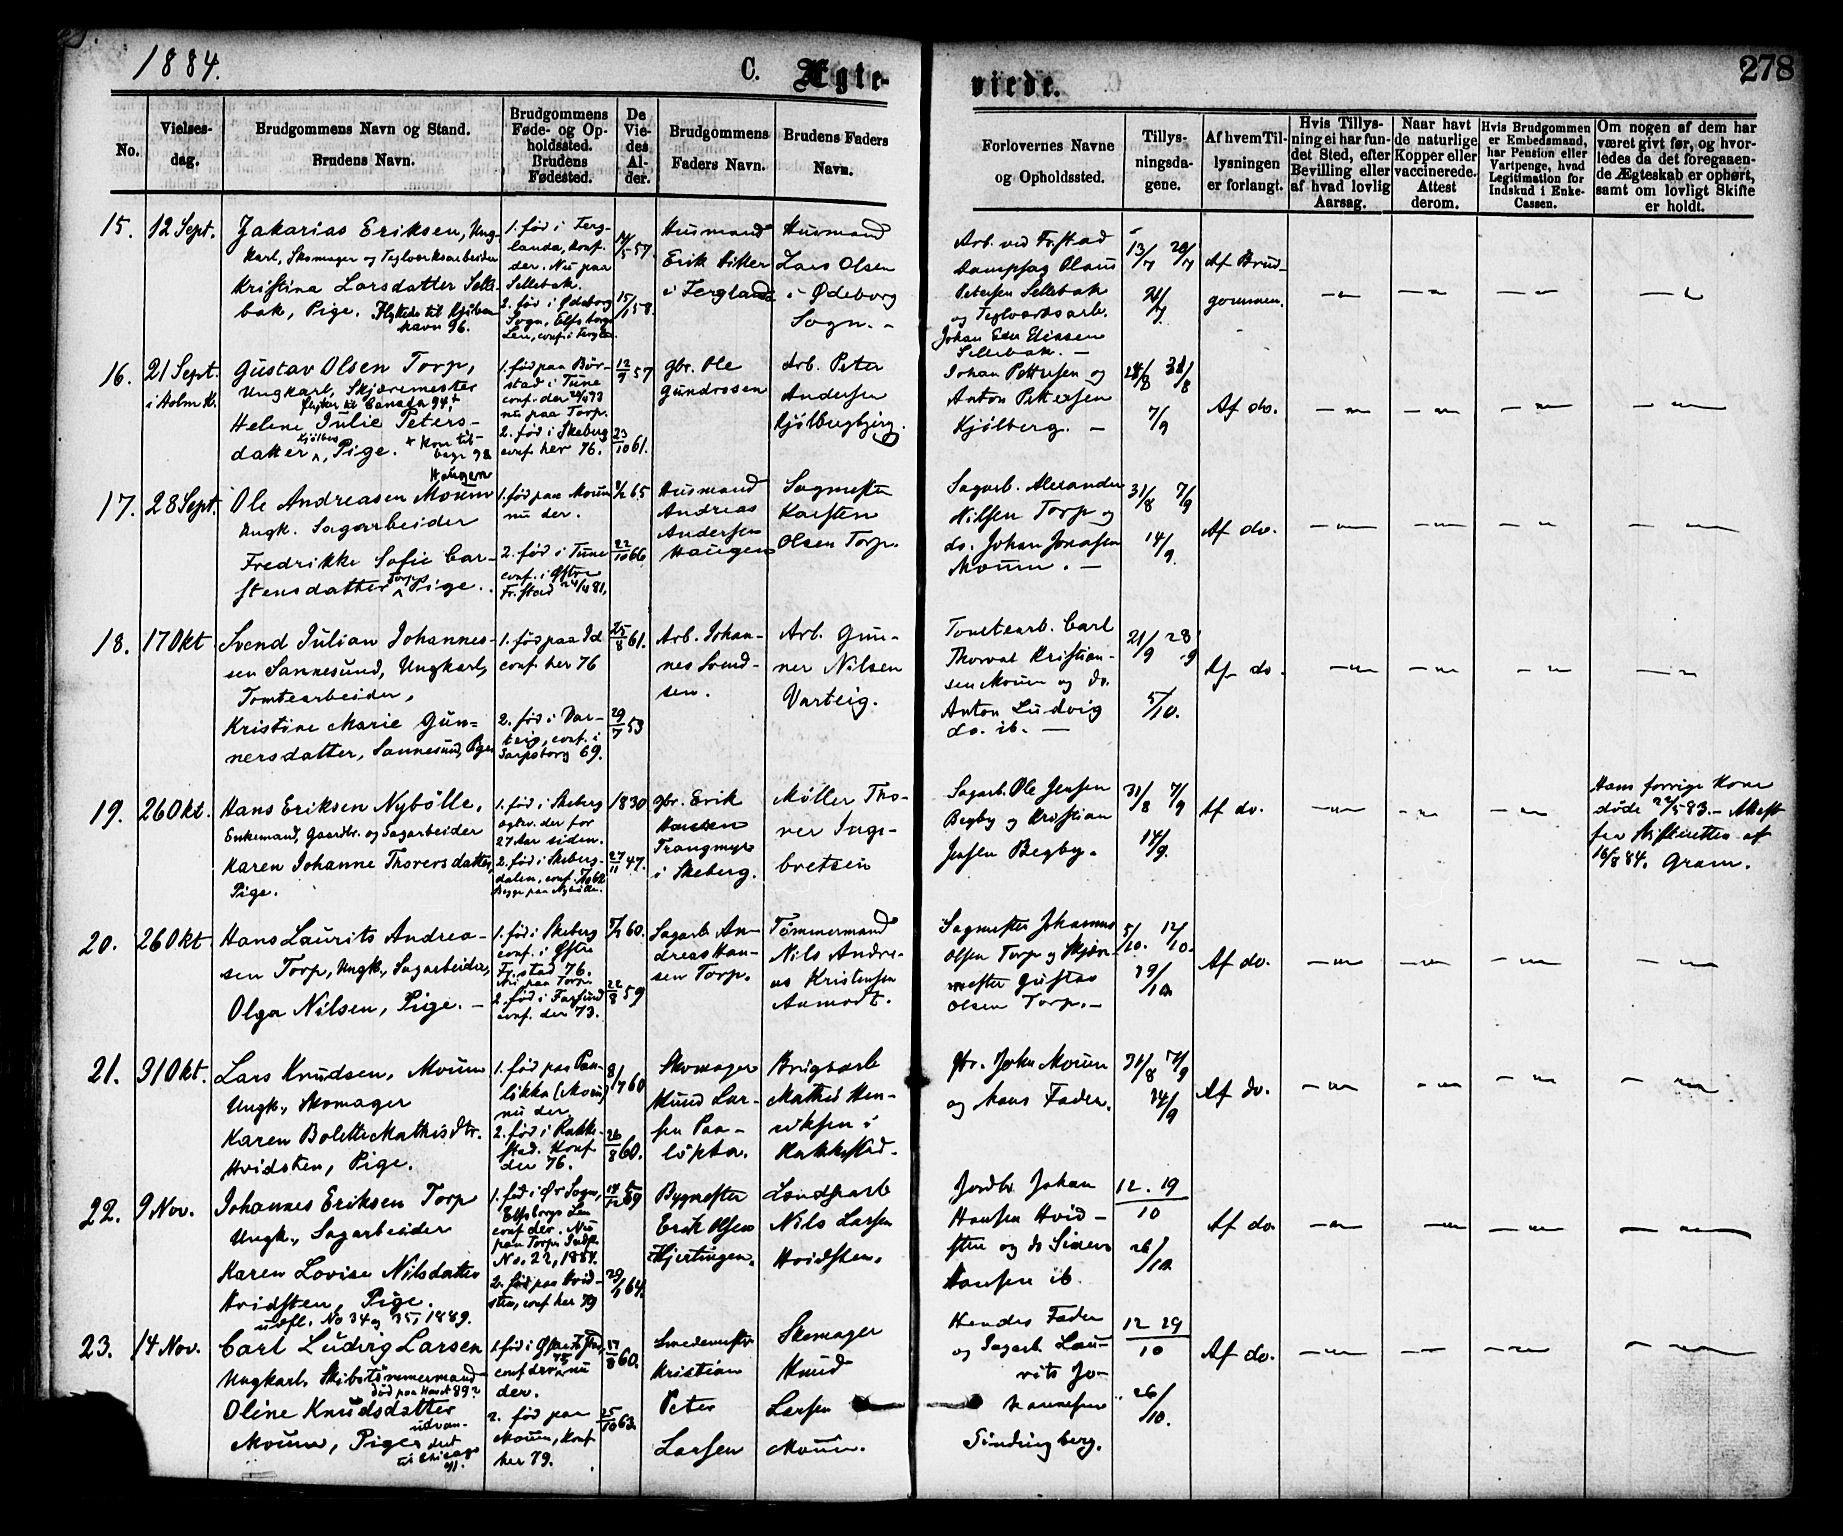 1884.
C. Ægte-
viede.
278
No.
Vielses-
dag.
Brudgommens Navn og Stand.
Brudens Navn.
Brudgommens
Føde- og Op-
holdssted.
Brudens
Fødested.
De
Vie-
des
Al-
der.
Brudgommens
Faders Navn.
Brudens Faders
Navn.
Forlovernes Navne
og Opholdssted.
Tillys-
ningsda-
gene.
Af hvem Til-
lysningen
er forlangt.
Hvis Tillys-
ning ei har fun-
det Sted, efter
Bevilling eller
af hvad lovlig
Aarsag.
Naar havt
de naturlige
Kopper eller
vaccinerede.
Attest
derom.
Hvis Brudgommen
er Embedsmand,
har Pension eller
Vartpenge, hvad
Legitimation for
Indskud i Enke-
Cassen.
Om nogen af dem har
været givt før, og hvor-
ledes da det foregaaen-
de Ægteskab er ophørt,
samt om lovligt Skifte
er holdt.
15.
12 Sept.
Zakarias Eriksen, Ung-
karl, Skomager og Teglverksarbeider
Kristina Larsdatter Selle-
bak, Pige. Flyttede til Kjøben-
havn 96.
1. fød i Tergl-
landa, konf.
der. Nu paa
Sellebak.
2. fød i Ødeborg
Sogn, Elfsborgs
Len, conf. i
57.
15/1 58.
Husmand
Erik
i
Husmand
Lars Olsen
i Ødeborg
Sogn. -
Arb. ved Fr.stad
Dampsag Olaus
Petersen Sellebak
og Teglverksarb.
Johan
Sellebak. -
13/7 20/7
Af Brud-
gommen.
16.
21 Sept.
i Holm K.
Gustav Olsen Torp,
Ungkarl, Skjæremester
flyttet til Canada 94
Helene Julie Peters-
datter Kjølberg, Pige. + Kom til-
bage 98
1. fød paa Bør-
stad i Tune
conf. der 73
nu paa Torp.
2. fød i Skeberg
conf. her 76.
12/9 57
23/10 61.
Gbr. Ole
Gundrosen
Arb. Peter
Andersen
Kjølbergbjerg.
Johan Pettersen og
Anton Pettersen
Kjølberg. -
24/8 31/8
7/9
Af do.
17.
28 Sept.
Haugen
Ole Andreasen Moum
Ungk. Sagarbeider
Fredrikke Sofie Car-
stensdatter Torp, Pige.
1. fød paa Moum
nu der.
2. fød i Tune
conf. i Østre
Fr.stad 24/4 81.
65
22/10 66
Husmand
Andreas
Andersen
Haugen
Sagmester
Karsten
Olsen Torp.
Sagarb. Alexander
Nilsen Torp og
do. Johan Jonasen
Moum. -
31/8 7/9
14/9
Af do.
18.
17 Okt
Svend Julian Johannes-
sen Sannesund, Ungkarl,
Tomtearbeider,
Kristine Marie Gun-
nersdatter, Sannesund, Pige
1. fød paa Id
conf. her 76
2. fød i Var-
teig, conf. i
Sarpsborg 69.
25/8 61.
29/7 53
Arb. Johan-
nes Svend-
sen.
Arb. Gun-
ner Nilsen
Varteig.
Tomtearb. Carl
Thorvat Kristian-
sen Moum og do.
Anton Ludvig
do. ib. -
21/9 28/9
5/10.
Af do.
19.
26 Okt.
Hans Eriksen Nybölle,
Enkemand, Gaardbr. og Sagarbeider
Karen Johanne Thorersdatter,
Pige.
1. fød i Skeberg
der for
27 Aar siden.
2. fød i Skeberg-
dalen, conf.
Begge paa Nybølle.
1830
27/11 47.
Gbr. Erik
Hansen
Trangmyr
i Skeberg.
Møller Tho-
rer Inge-
bretsen
Sagarb. Ole Jensen
Begby og Kristian
Jensen Begby.
31/8 7/9
14/9.
Af do.
Hans forrige Kone
døde 83. - Attest
fra Skifteretten af
16/8 84. Gram.
20.
26 Okt
Hans Laurits Andrea-
sen Torp, Ungk., Sagarbeider,
Olga Nilsen, Pige. -
1. fød i Skeberg
conf. i Østre
Fr.stad 76.
Nu paa Torp.
2. fød i
conf. der 73.
60.
22/8 59
Sagarb. An-
dreas Han-
sen Torp.
Tømmermand
Nils Andre-
as Kristensen
Aamodt.
Sagmester Johannes
Olsen Torp og Skjære-
mester Gustav
Olsen Torp. -
5/10. 12/10.
19/10.
Af do.
21.
31 Okt.
Lars Knudsen, Moum
Ungk., Skomager
Karen Bolette Mathisdtr.
Hvidsten, Pige.
1. fød paa Paa-
løkka (Moum)
nu der
2. fød i Rakke-
stad. Konf
der 76.
8/7 60
26/8 60.
Skomager
Knud Lar-
sen Paa-
løpta.
Brugsarb
Mathis Hen-
riksen i
Rakkestad.
Gbr. John Moum
og hans Fader.
31/8 7/9
14/9
Af do.
22.
9 Nov.
Johannes Eriksen Torp
Ungk., Sagarbeider
Karen Lovise Nilsdatter
Hvidsten, Pige.
udfl. No 34 og 35, 1889.
1. fød i Ør Sogn,
Elfsborgs Len
conf. der. Nu
paa Torp. Indfl.
No. 22, 1884.
2. fød paa Hvid-
sten, conf. her 79
59
64.
Bygmester
Erik Olsen
Hjertingen.
Landsarb
Nils Larsen
Hvidsten.
Jordbr Johan
Hansen Hvid-
sten og do Simen
Hansen ib.
12. 19
10
26/10.
Af do
23.
14 Nov.
Carl Ludvig Larsen
Ungkarl, Skibstømmermand
død paa Havet 89?
Oline Knudsdatter
Moum, Pige
udvan-
dret
til Chicago
91.
1. fød i
conf der 75 nu
der.
2. fød paa
Moum, Konf
her 79.
60.
25/10 63
Smedemester
Kristian
Peter
Larsen
Skomager
Knud
Larsen
Moum.
Hendes Fader
og Sagarb. Lau-
rits Jo-
hannesen
Sindringberg.
12 19
10
26/10.
Af do.